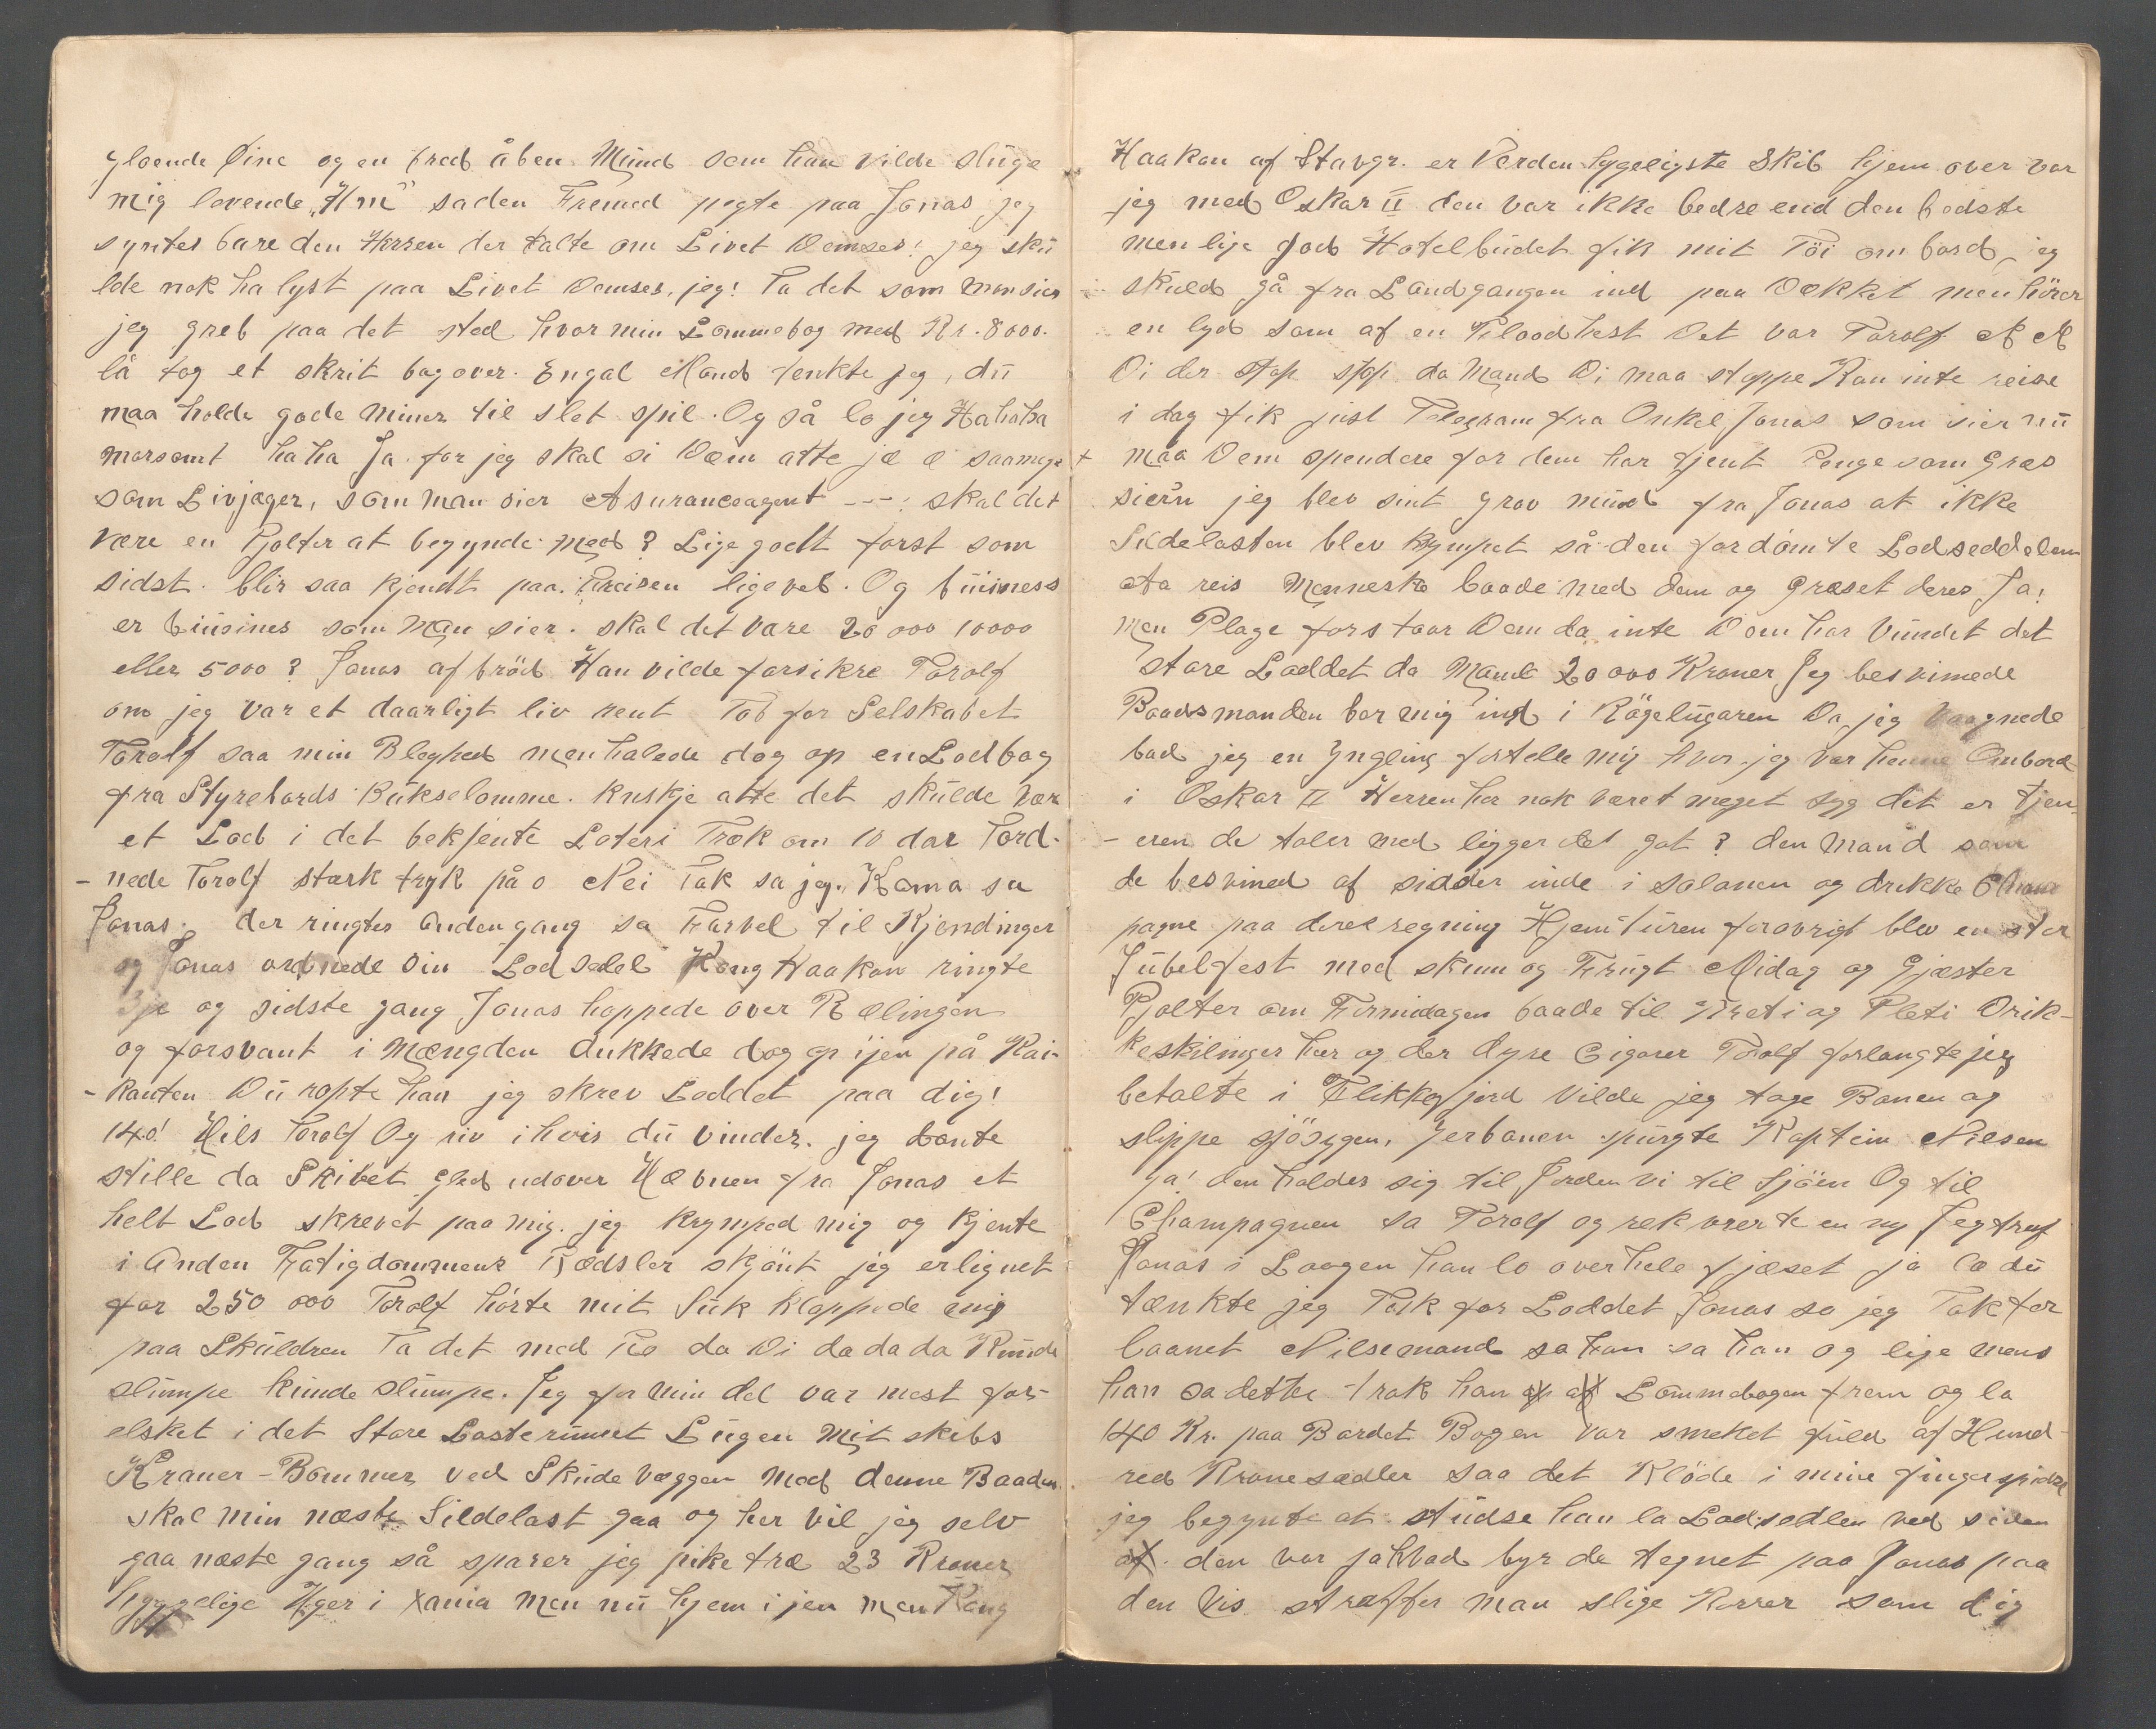 gloende Øine og en bred åben Mund som han vilde sluge
mig levende, "Hm" sa den Fremed pegte paa Jonas jeg
syntes bare den Herren der talte om Livet Demses! jeg sku
lde nok ha lyst paa Livet Demses, jeg! Ta det som man sier
jeg greb paa det sted hvor min Lommebog med Kr. 8000.
lå tog et skrit bagover. Engal Mand tenkte jeg, du
maa holde gode miner til slet spil. Og så lo jeg Hahaha
morsomt haha Ja for jeg skal si Dem atte je æ saamege
som Livjæger, som man sier Asuranceagent ---: skal det
være en Pjolter at begynde med? Lige godt først som
sidst. blir saa kjendt paa. Preisen ligevel. Og buisness
er buisines som man sier. skal det være 20 000 10000
eller 5000? Jonas afbröd Han vilde forsikre Torolf
om jeg var et daarligt liv rent Tab for Selskabet
Torolf saa min Bleghed men halede dog op en Lodbog
fra Styrebords Bukselomme. Knskje atte det skulde vær
et Lod i det bekjente Loteri Træk om 10 dar Tord-
-nede Torolf stærk tryk på o Nei Tak sa jeg. Kama sa
Jonas. der ringtes anden gang sa Farvel til Kjendinger
og Jonas ordnede sin Lodsedel Kong Haakon ringte
3je og sidste gang Jonas hoppede over Rælingen
og forsvant i Mængden dukkede dog op ijen på Kai-
-kanten Du ropte han jeg skrev Loddet paa dig!
140! Hils Torolf Og riv ihvis du vinder. jeg dånte
stille da Skibet gled udover Hævnen fra Jonas et
helt Lod skrevet paa mig. jeg krympad mig og kjente
i Anden Fatigdommens Rædsler skjönt jeg er lignet
for 250 000 Torolf hörte mit Suk klappede mig
paa Skuldren Ta det med Ro da Di da da da Kunde
slumpe kunde slumpe. Jeg for min del var mest for-
elsket i det Store Lasterummet Lugen Mit skibs
Kraner-Bommer ved Skudevæggen Med denne Baaden
skal min næste Sildelast gaa og her vil jeg selv
gaa næste gang så sparer jeg pike træ 23 Kroner
hyggelige Uger i Xania Men nu hjem ijen men Kong
Haakon af Stavgr. er Verden hygeligste Skib hjem over var
jeg med Oskar II den var ikke bedre end den bedste
men lige god Hotelbudet fik mit Töi om bord, jeg
skuld gå fra Landgangen ind paa Dækket men hörer
en lyd som af en Floodhest Det var Torolf N N
Di der Stop stop da Mand Di maa stoppe Kan inte reise
i dag fik just Telegram fra Onkel Jonas som sier nu
+ maa Dem spendere for dem har tjent Penge som Græs
sier'n jeg blev sint grov mund fra Jonas at ikke
Sildelasten blev krympet så den fordömte Lodseddelen
Aa reis Menneske baade med dem og Græset deres Ja!
men Plage forstaar Dem da inte Dem har vundet det
store Loddet da Mand 20 000 Kroner Jeg besvimede
Baadsmanden bar mig ind i Rögelugaren Da jeg vaagnede
bad jeg en Yngling fortelle mig hvor jeg var henne Ombord
i Oskar II Herren har nok været meget syg det er tjen-
-eren de taler med ligger det got? den Mand som
de besvimed af sidder inde i salonen og drikke Cham
pagne paa deres regning Hjemturen forøvrigt blev en stor
Jubelfest med skum og Frugt Midag og Gjæster
Pjolter om Formidagen baade til Kreti og Pleti Drik-
keskilinger her og der dyre Cigarer Torolf forlangte jeg
betalte i Flikkefjord Vilde jeg tage Banen og
slippe sjösygen. Jerbanen spurgte Kaptein Nilsen
ja! den holder sig til Jorden vi til Sjöen Og til
Champagnen sa Torolf og rekvirerte en ny Jeg traf
Jonas i Laagen han lo over hele fjæset ja le du
tænkte jeg Tak for Loddet Jonas sa jeg Tak for
laanet Nilsemand sa han sa han og lige mens
han sa dette trak han op af Lommebogen frem og la
140 Kr. paa Bordet Bogen var smeket fuld af Hund-
red Kronesædler saa det Klöde i mine fingerspidse
jeg begynte at studse han la Lodsedlen ved siden
af. den var ja hvad byr de tegnet paa Jonas paa
den vis straffer man slige Knorer som dig